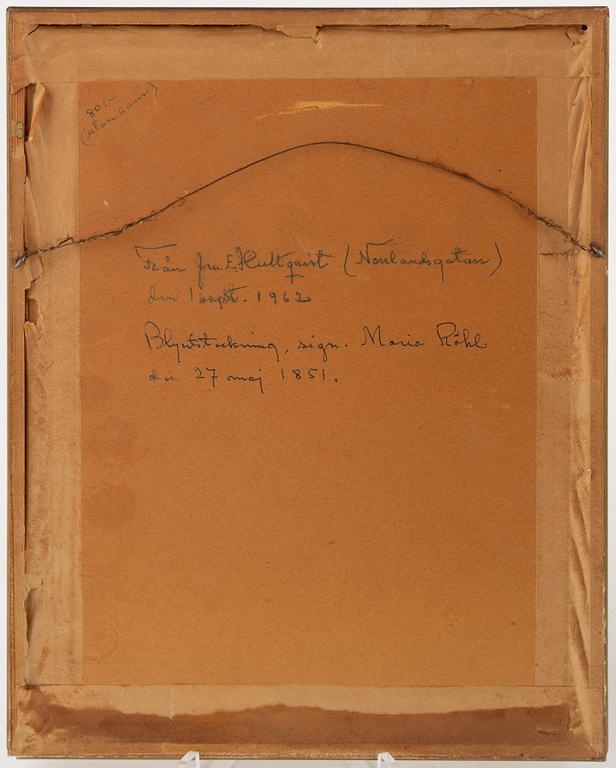 80:-
(utan ram)
Från fru E. Hultquist (Norrlandsgatan)
den 1 sept. 1962
Blyertsteckning, sign. Maria Röhl
den 27 maj 1851.